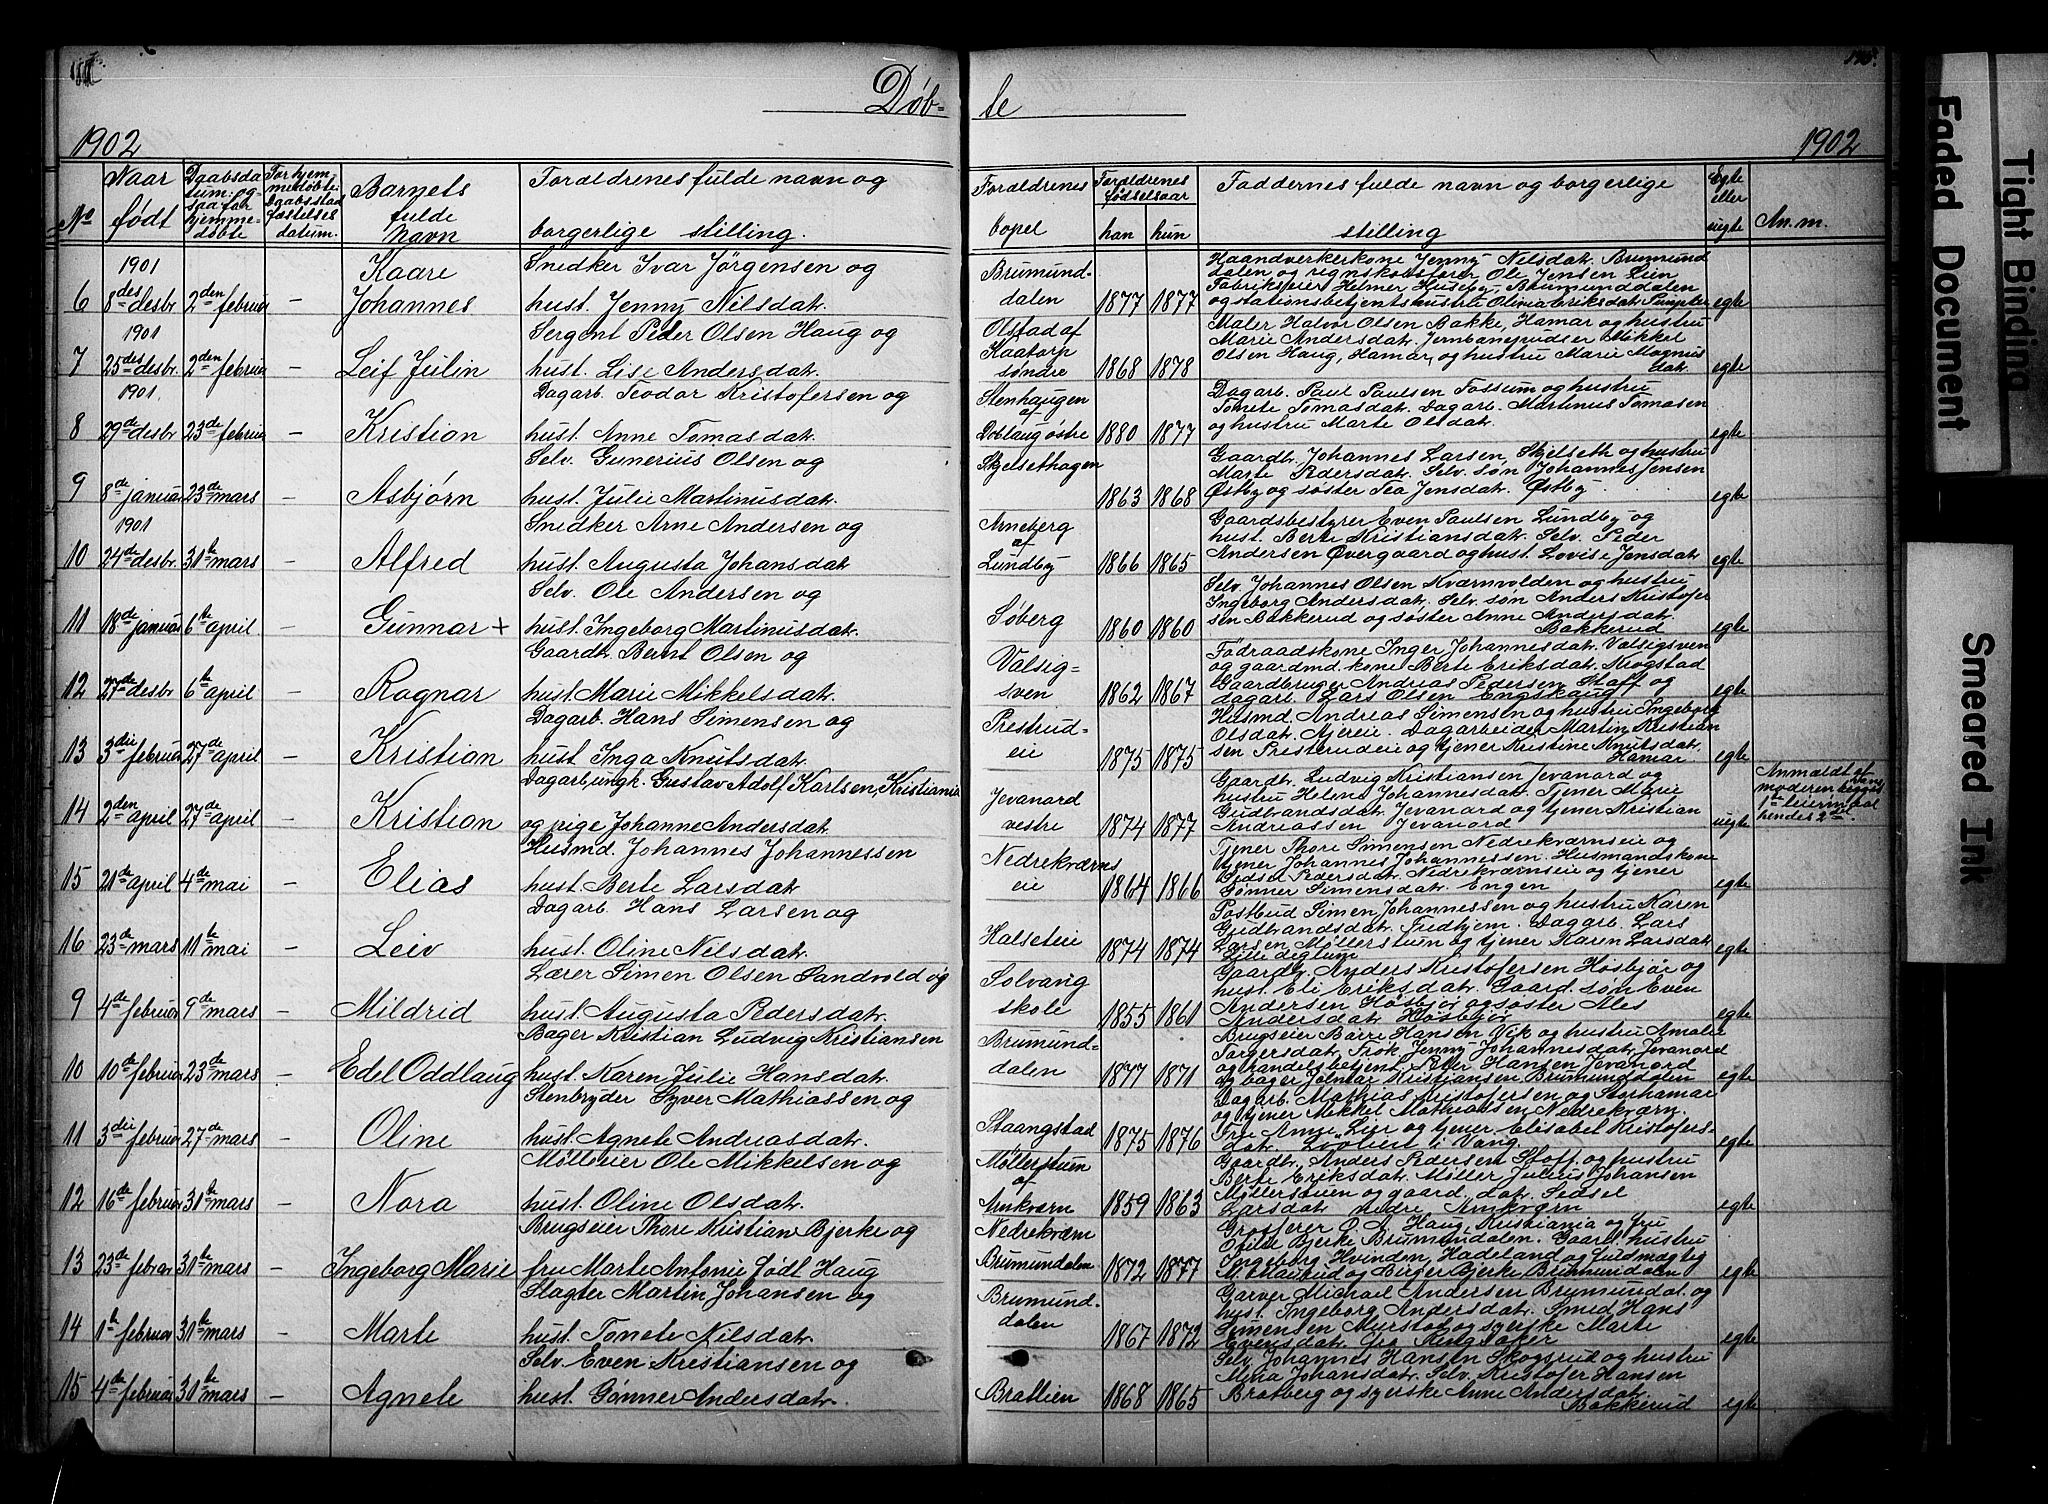 Døb-
te
1902
1902
No
Naar født
Daabsdatum. ogsaa for hjemmedøbte
For hjemmedøbte: Daabsstadfæstelses datum.
Barnets fulde Navn
Forældrenes fulde navn og borgerlige stilling.
Forældrenes bopel
Forældrenes fødselsaar
han hun
Faddernes fulde navn og borgerlige stilling
Egte eller uegte
An.m.
6 1901 8des desbr. 2den februar – Kaare Johannes
Snedker Ivar Jørgensen og
hust. Jenny Nilsdat.
Brumunddalen 1877 1877
Haandverkerkone Jenny Nilsdat. Brumund
dalen og regnskabsfører Ole Jensen Lein
Fabrikseier Helmer Huseby, Brumunddalen
og stationsbetjents hustru Olivia Eriksdat.
egte
7 1901 25des desbr. 2den februar – Leif Julin
Sergent Peder Olsen Haug og
hust. Lise Andersdat.
Olstad af Kaatorp søndre 1868 1878
Maler Halvor Olsen Bakke, Hamar og hustru
Marie Andersdat. Jernbanepudser Mikkel
Olsen Haug, Hamar, og hustru Marie Magnus
dat.
egte
8 1901. 29de desbr. 23de februar – Kristian
Dagarb. Teodor Kristofersen og
hust. Anne Tomasdat.
Stenhaugen af Døblaug østre 1880 1877
Dagarb. Paul Paulsen Fossum og hustru
Tonete Tomasdat. Dagarb. Martinus Tomasen
og hustru Marte Olsdat.
egte
9 8de januar 23de mars – Asbjørn
Selv. Gunerius Olsen og
hust. Julie Martinusdat.
Skjelsethagen 1863 1868
Gaardbr. Johannes Larsen, Skjelseth og hustru
Marte Pedersdat. Selv. søn Johannes Jensen
Østby og søster Tea Jensdat. Østby.
egte
10 1901 24de desbr. 31te mars – Alfred
Snedker Arne Andersen og
hust. Augusta Johansdat.
Arneberg af Lundby 1866 1865
Gaardsbestyrer Even Paulsen Lundby og
hust. Berte Kristiansdat. Selv. Peder
Andersen Øvergaard og hust. Lovise Jensdat.
egte
11 18de januar 6te april – Gunnar +
Selv. Ole Andersen og
hust. Ingeborg Martinusdat.
Søberg 1860 1860
Selv. Johannes Olsen Kværnvolden og hustru
Ingeborg Andersdat. Selv. søn Anders Kristofer
sen Bakkerud og søster Anne Andersdat.
Bakkerud
egte
12 27de desbr 6te april – Ragnar
Gaardbr. Bernt Olsen og
hust. Marie Mikkelsdat.
Valsigsven 1862 1867
Føderaadskone Inger Johannesdat. Valsigsven
og gaardmd. kone Berte Eriksdat. Krogstad
Gaardbruger Andreas Pedersen Stoff og
dagarb. Lars Olsen Engskaug
egte
13 3die februar 27de april – Kristian
Dagarb. Hans Simensen og
hust Inga Knutsdat.
Prestrudeie 1875 1875
Husmd. Andreas Simensen og hustru Ingeborg
Olsdat. Ajereie. Dagarbeider Martin Kristian
sen Presterudeie og tjener Kristine Knutsdat.
Hamar
egte
14 2den april 27de april – Kristian
Dagarb, ungk. Gustav Adolf Karlsen, Kristiania
og pige Johanne Andersdat.
Jevanord vestre 1874 1877
Gaardbr. Ludvig Kristiansen Jevanord og
hustru Helene Johannesdat. Tjener Marie
Gudbrandsdat. Jevanord og tjener Kristian
Andreassen Jevanord
uegte
Anmeldt af moderen begges 1ste leiermaal hendes 2det.
15 21de april 4de mai – Elias
Husmd. Johannes Johannessen
hust. Berte Larsdat.
Nedrekværnseie 1864 1866
Tjener Thore Simensen Nedrekværnseie og
tjener Johannes Johannessen. Husmandskone
Sidsel Pedersdat. Nedrekværnseie og tjener
Gønner Simensdat. Engen
egte
16 23de mars 11te mai – Leiv
Dagarb. Hans Larsen og
hust. Oline Nilsdat.
Halseteie 1874 1874
Postbud Simen Johannessen og hustru Karen
Gudbrandsdat. Fredhjem. Dagarb. Lars
Larsen Møllerstuen og tjener Karen Larsdat.
Lille digtum
egte
9 4de februar 9de mars – Mildrid
Lærer Simen Olsen Sandvold og
hust. Augusta Pedersdat.
Solvang skole 1855 1861
Gaardbr. Anders Kristofersen Høsbjør og
hust. Eli Eriksdat. Gaard. søn Even
Andersen Høsbjør og søster Ales
Andersdat. Høsbjør
egte
10 10de februar 23de mars – Edel Oddlaug
Bager Kristian Ludvig Kristiansen
hust. Karen Julie Hansdat.
Brumunddalen 1877 1871
Brugseier Børre Hansen Vik og hustru Amalie
Torgersdat. Frøk. Jenny Johannesdat. Jevanord
og handelsbetjent Peter Hansen Jevanord
og bager Jelmar Kristiansen Brumunddalen
egte
11 3die februar 27de mars – Oline
Stenbryder Syver Mathiassen og
hust. Agnete Andreasdat.
Staangstad 1875 1876
Dagarb. Mathias Kristofersen og Storhamar
og tjener Mikkel Mathiassen Nedrekværn.
Fru Anne Lier og tjener Elisabet Kristofers-
dat. i Vang.
egte
12 16de februar 31te mars – Nora
Mølleeier Ole Mikkelsen og
hust. Oline Olsdat.
Møllerstuen af Arnkværn 1859 1863
Gaardbr. Anders Pedersen Stoff og hustru
Berte Eriksdat. Møller Julius Johansen
Møllerstuen og gaard. dat. Sidsel
Larsdat. nedre Arnkværn
egte
13 23de febrar 31te mars – Ingeborg Marie
Brugseier Thore Kristian Bjerke og
fru Marte Antonie født Haug
Nedrekværn Brumundalen 1872 1877
Grosserer O. A. Haug, Kristiania og fru
Ofilie Bjerke Brumundalen. Gaard. hustru
Ingeborg Hvinden, Hadeland og fuldmægtig
M. og Birger Bjerke Brumundalen
egte
14 1te februar 31te mars – Marte
Slagter Martin Johansen og
hust. Tonete Nilsdat.
Brumunddalen 1867 1872
Garver Michael Andersen Brumunddal. og
hust. Ingeborg Andersdat. Smed Hans
Simensen Murstad og syerske Marte
Evensdat. Ringsaker
egte
15 4de februar 31te mars – Agnete
Selv. Even Kristiansen og
hust. Gønner Andersdat.
Bratlien 1868 1865
Selv. Johannes Hansen Skogsrud og hustru
Mina Johansdat. Selv. Kristofer Hansen
Bratberg og syerske Anne Andersdat.
Bakkerud
egte
Faded Document
Tight Binding
Smeared Ink